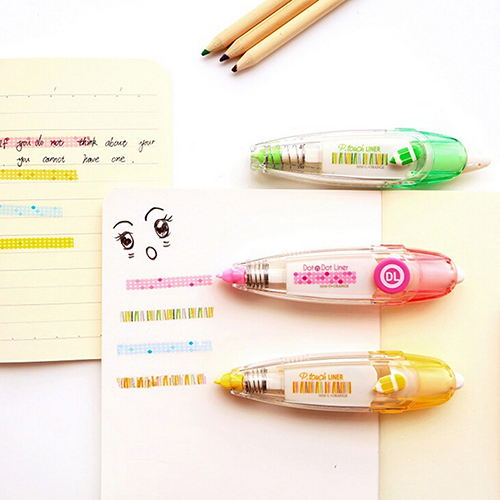 If you do not think about your
you cannot have one.
P.touch LINER
Dot & Dot Liner
DL
P.touch LINER